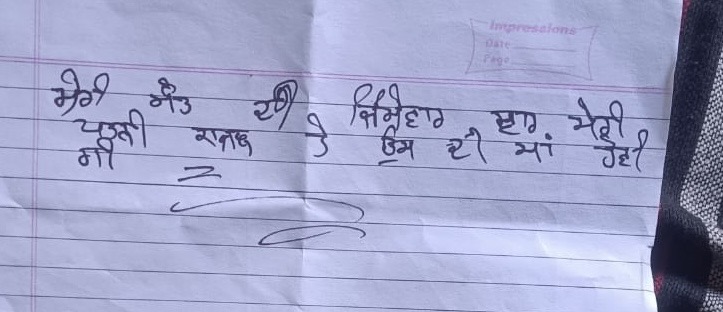 Impressions
Date
Page
ਮੇਰੀ ਮੌਤ ਦੀ ਜਿੰਮੇਵਾਰ ਮੇਰੀ
ਪਤਨੀ ਤੇ ਉਸ ਦੀ ਮਾਂ ਹੋਣੀ
ਸੀ